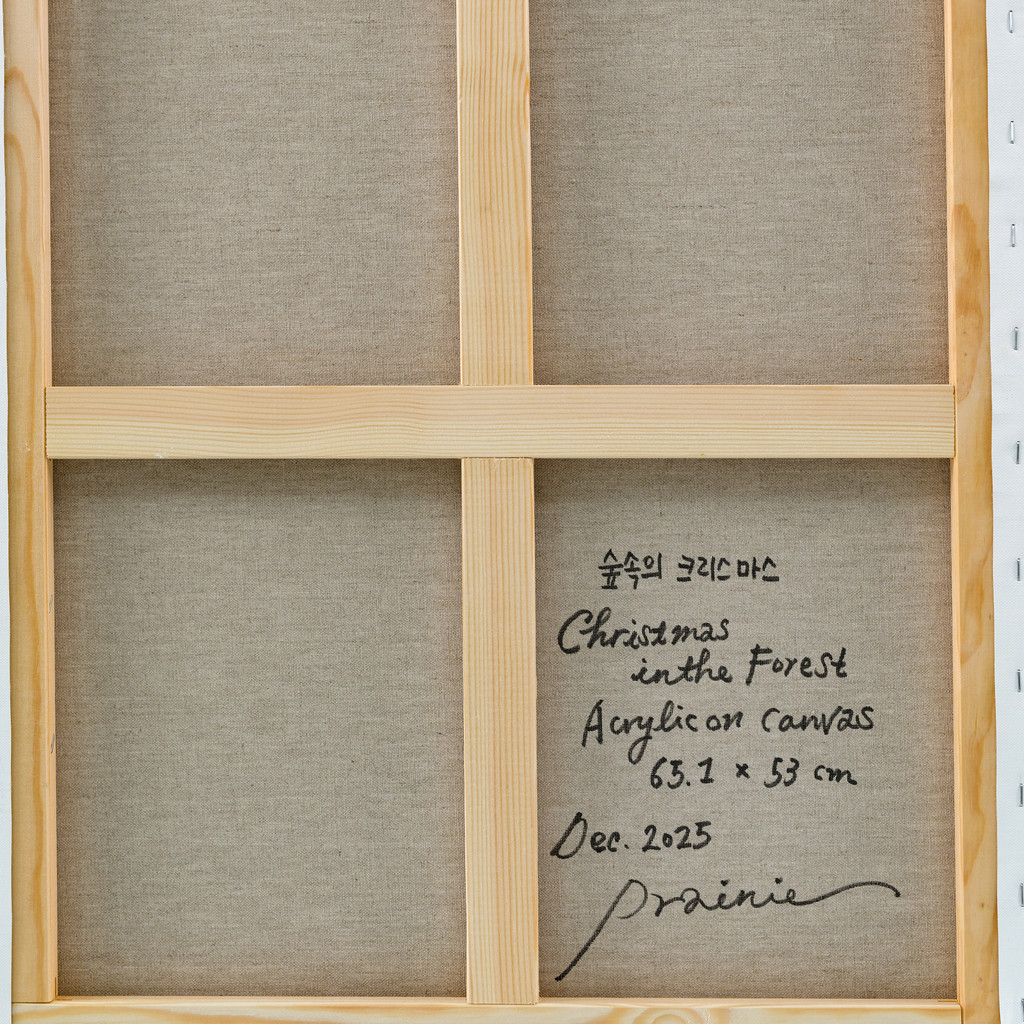 숲속의 크리스마스
Christmas
in the Forest
Acrylic on canvas
65.1 × 53 cm
Dec. 2025
Prainie